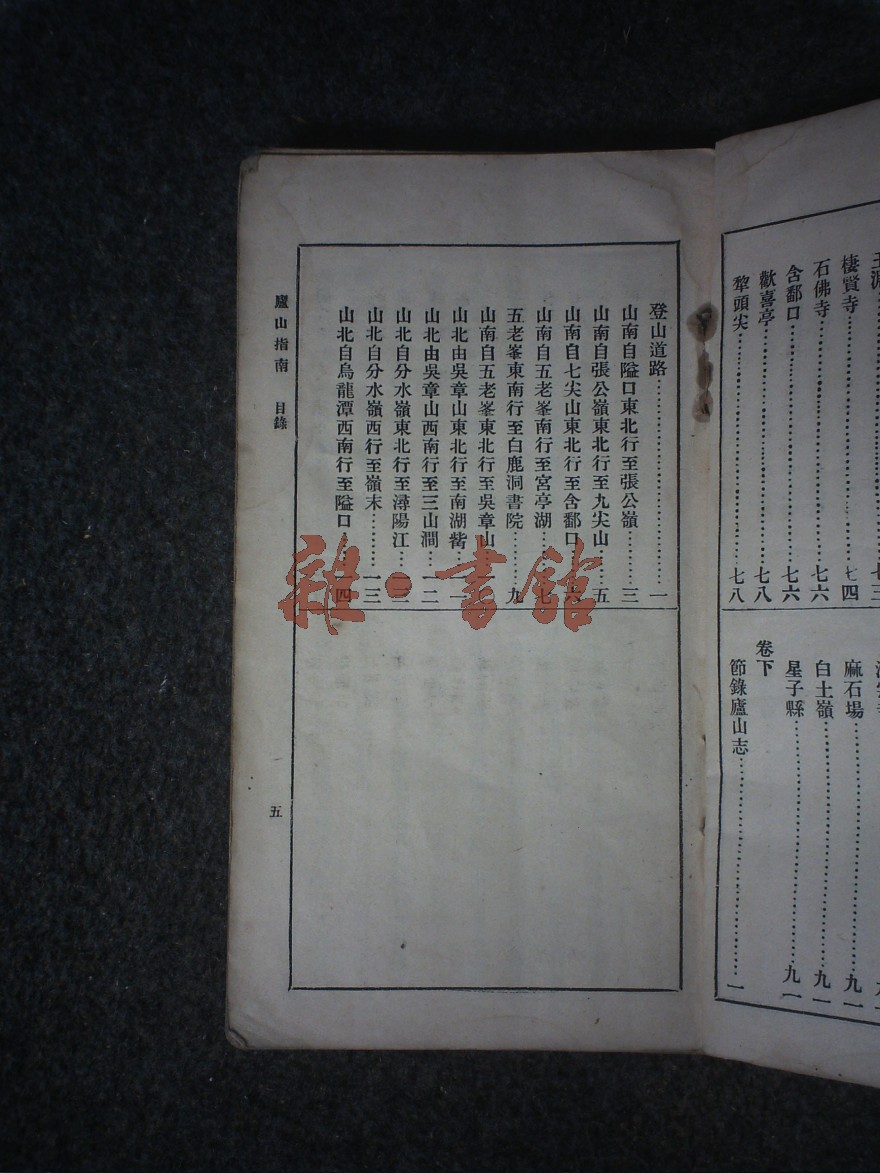 棲賢寺……七四
石佛寺……七六
含鄱口……七六
歡喜亭……七八
犂頭尖……七八
麻石場……九一
白土嶺……九一
星子縣……九一
卷下
節錄廬山志……一
登山道路……一
山南自隘口東北行至張公嶺……三
山南自張公嶺東北行至九尖山……五
山南自七尖山東北行至含鄱口……六
山南自五老峯南行至宮亭湖……七
五老峯東南行至白鹿洞書院……九
山南自五老峯東北行至吳章山
山北由吳章山東北行至南湖觜……一一
山北由吳章山西南行至三山澗……一二
山北自分水嶺東北行至潯陽江
山北自分水嶺西行至嶺末……一三
山北自烏龍潭西南行至隘口……一四
廬山指南 目錄
五
雜·書館